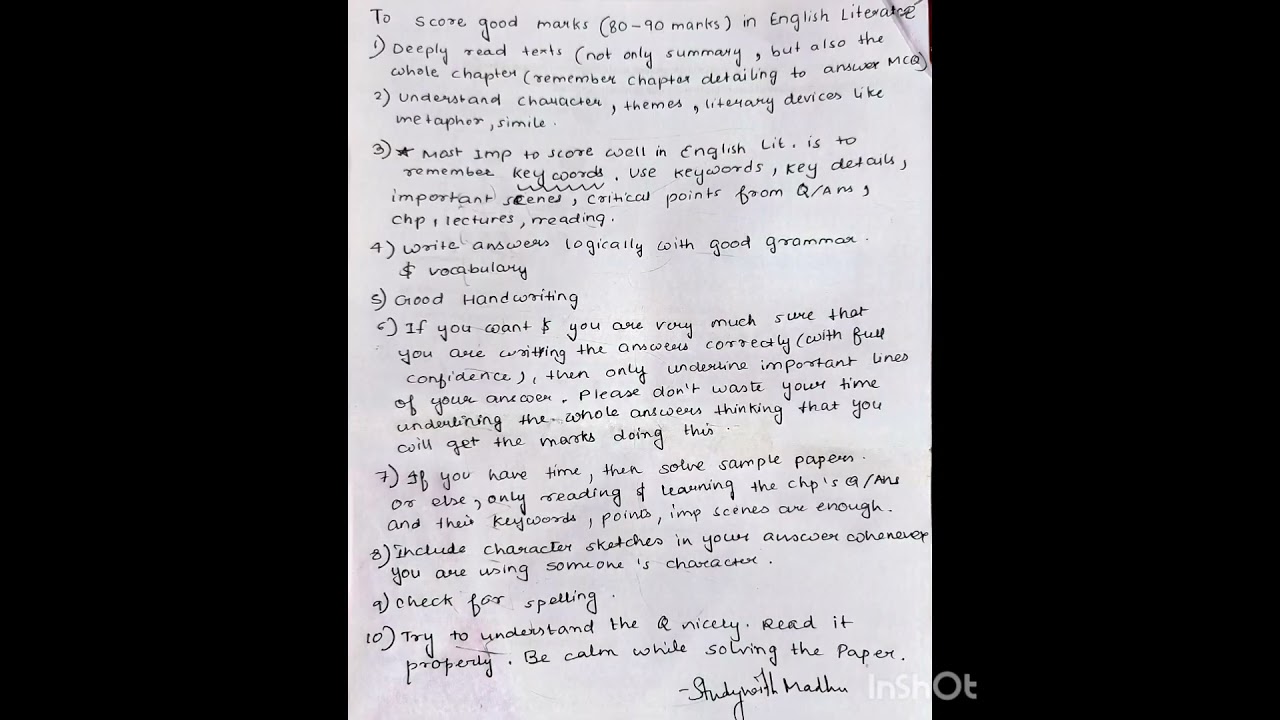 To score good marks (80-90 marks) in English Literature
1) Deeply read texts (not only summary, but also the
whole chapter (remember chapter detailing to answer MCQ)
2) Understand character, themes, literary devices like
metaphor, simile.
3) ★ Most Imp to score well in English Lit. is to
remember key words. Use keywords, key details,
important scenes, critical points from Q/Ans,
chp, lectures, reading.
4) Write answers logically with good grammar.
& vocabulary
5) Good Handwriting
6) If you want & you are very much sure that
you are writing the answers correctly (with full
confidence), then only underline important lines
of your answer. Please don't waste your time
underlining the whole answers thinking that you
will get the marks doing this.
7) If you have time, then solve sample papers.
or else, only reading & learning the chp's Q/Ans
and their keywords, points, imp scenes are enough.
8) Include character sketches in your answer whenever
you are using someone's character.
9) Check for spelling.
10) Try to understand the Q nicely. Read it
properly. Be calm while solving the Paper.
-Studywith Madhu
InShOt